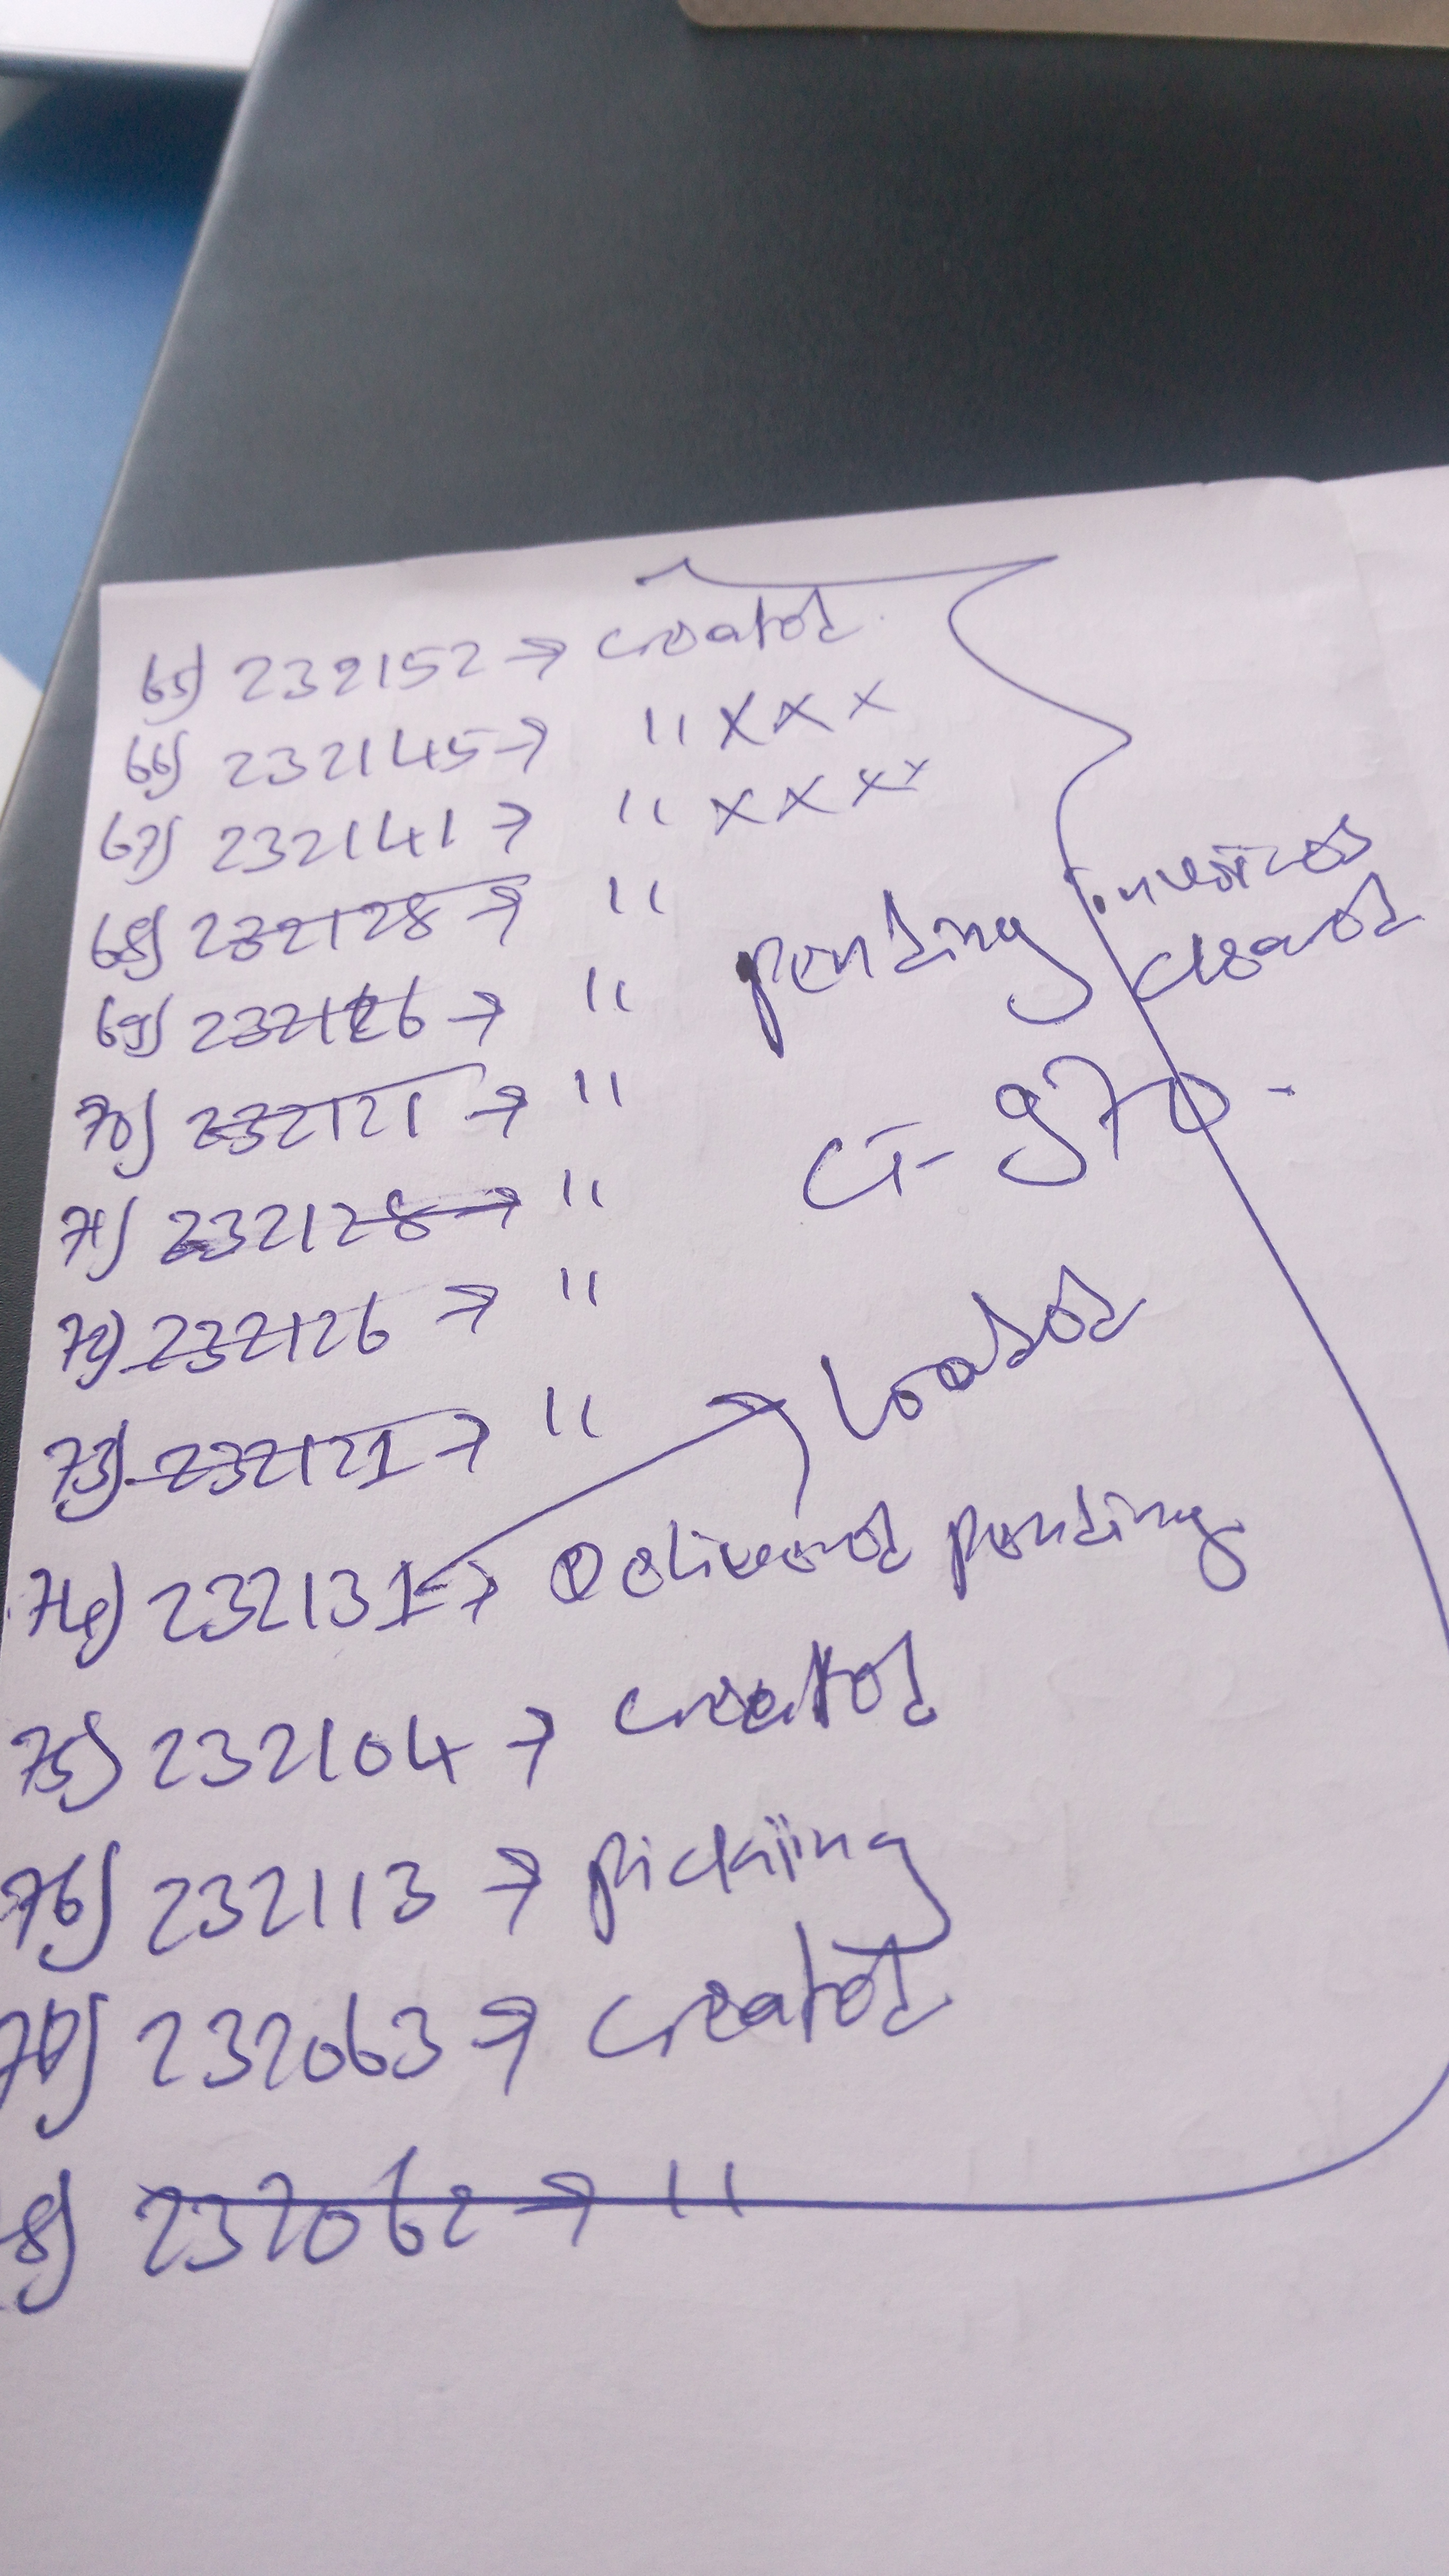 65) 232152 → created
66) 232145 → " X X X
67) 232141 → " X X X X
68) 232128 → "
69) 232126 → " pending invoices cleared
70) 232121 → "
CT- 970.
71) 232128 → "
72) 232126 → "
73) 232121 → " → Loaded
74) 232131 → Delivered pending
75) 232104 → created
76) 232113 → pickiing
77) 232063 → created
8) 232062 → "